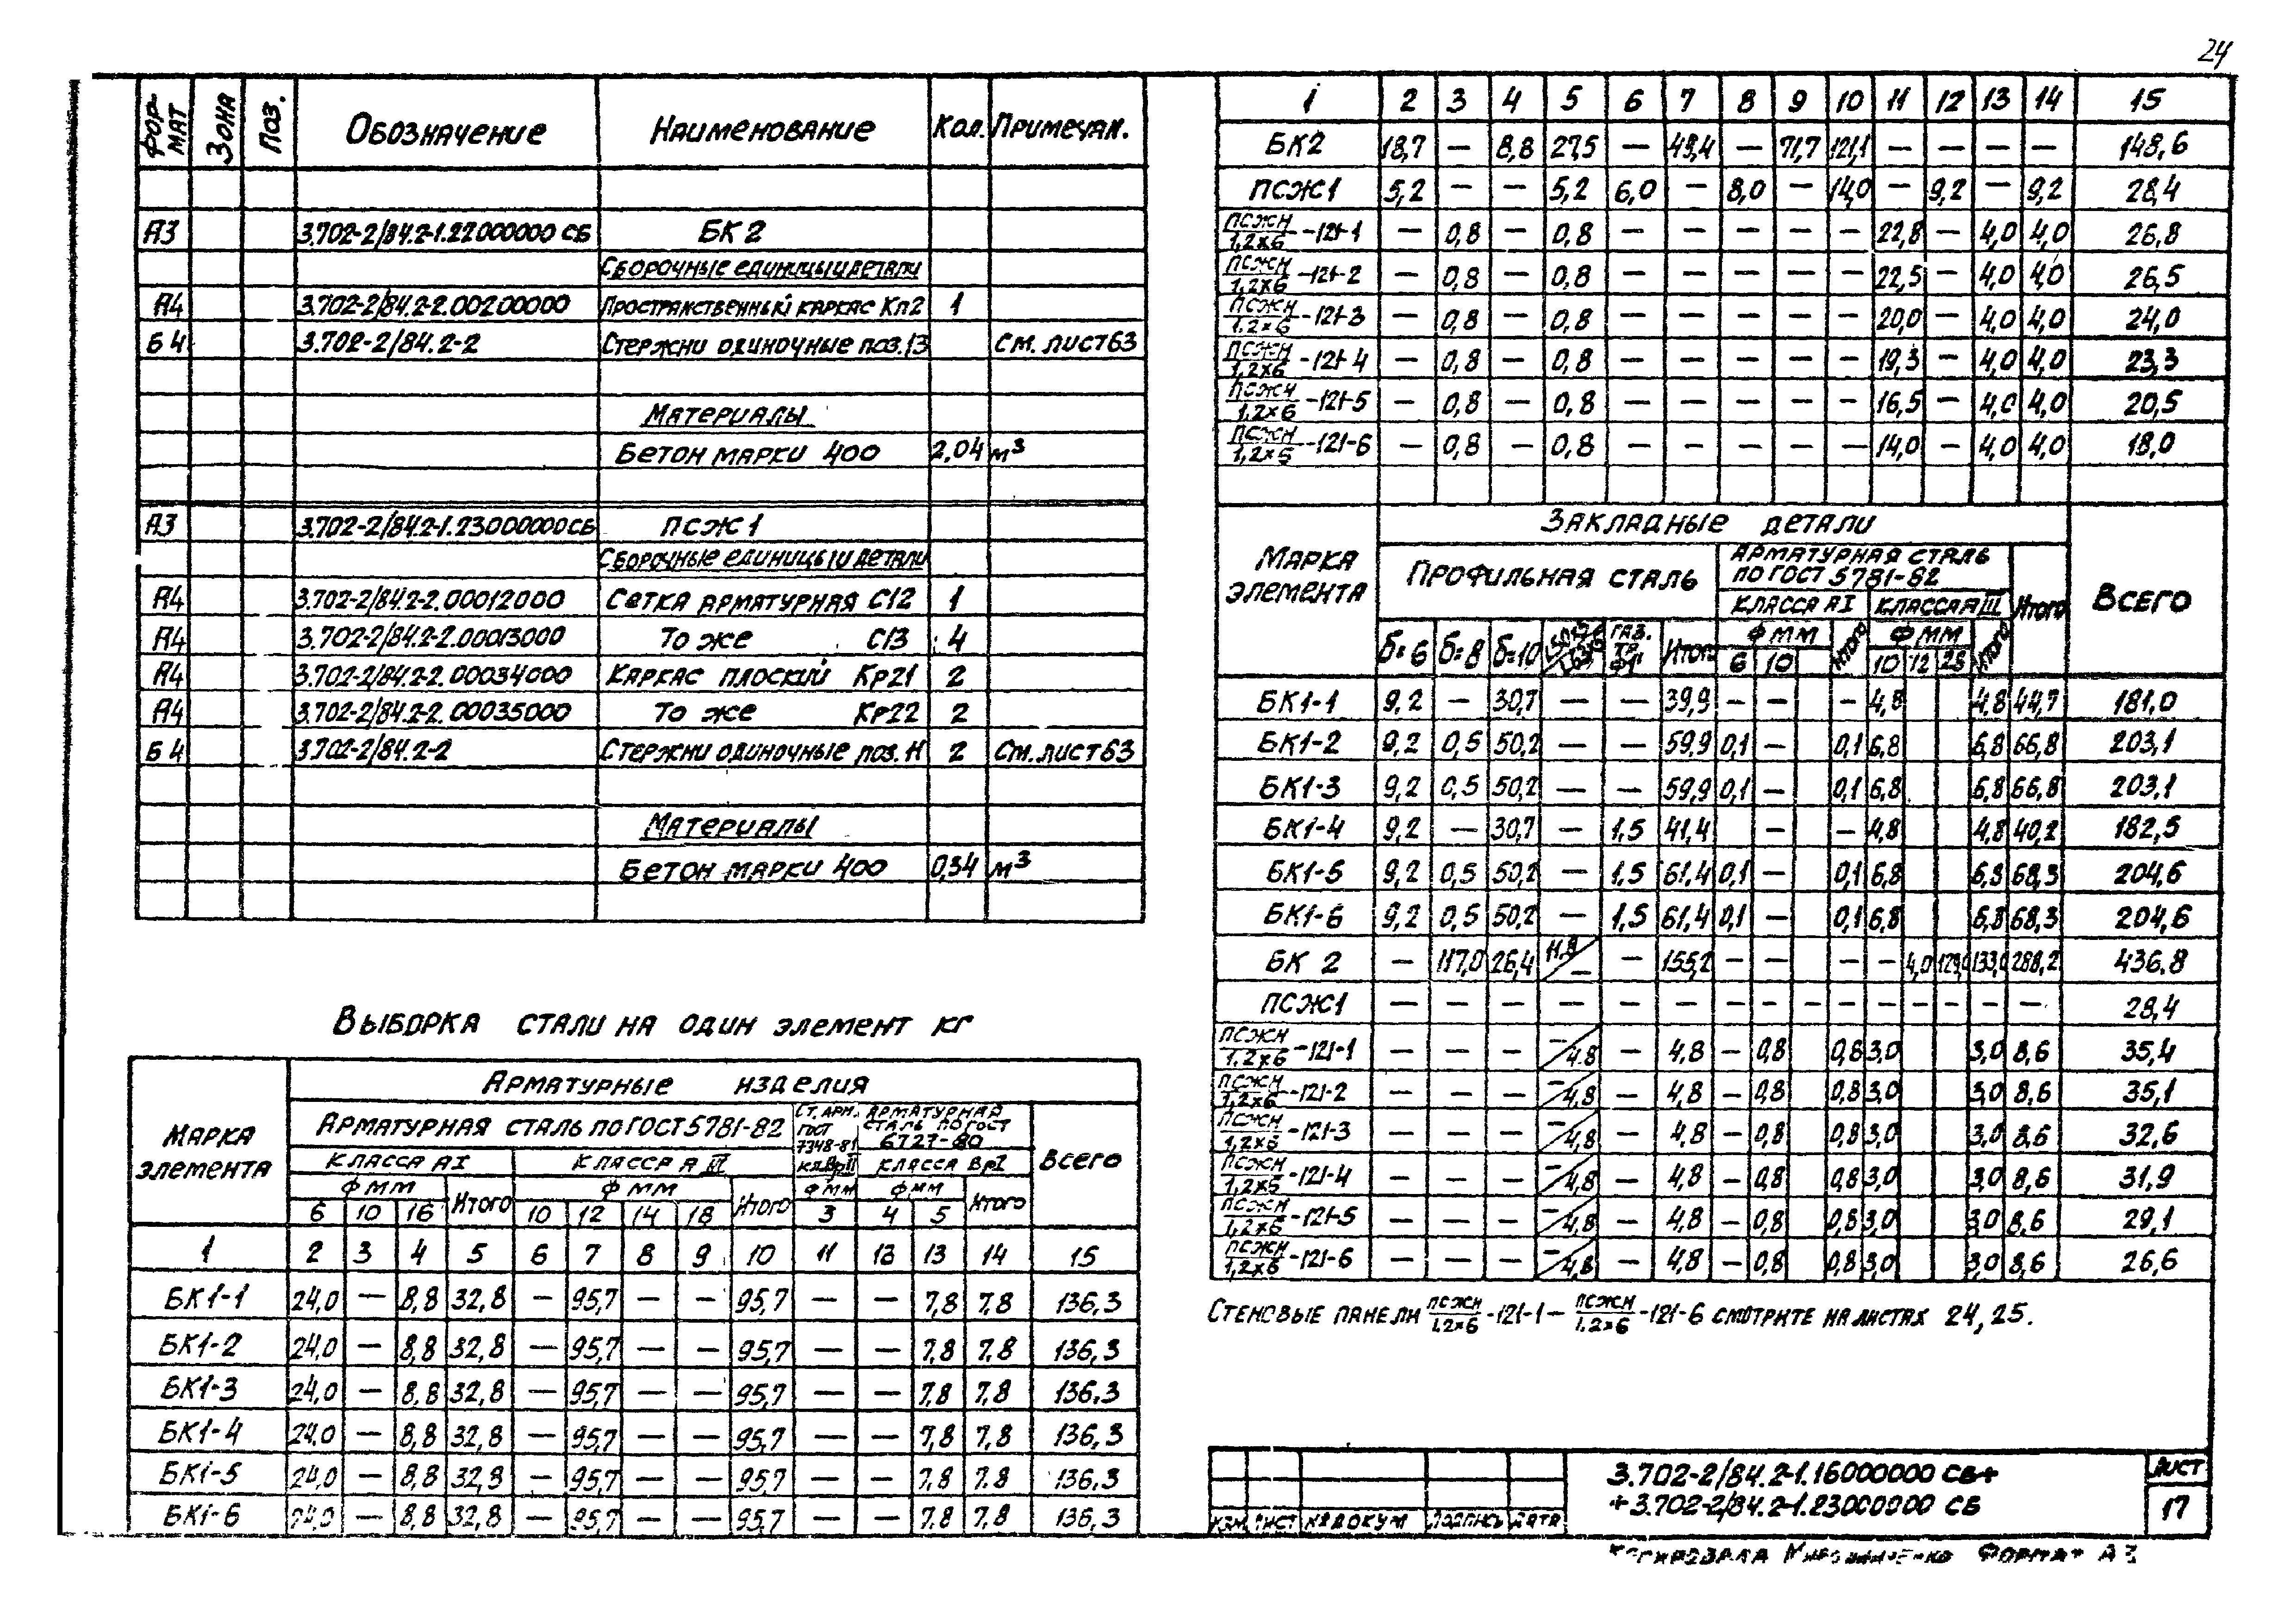 24
Формат | Зона | Поз. | Обозначение | Наименование | Кол. | Примечан.
А3 | 3.702-2/84.2-1.22000000 СБ | БК 2
Сборочные единицы и детали
А4 | 3.702-2/84.2-2.00200000 | Пространственный каркас Кп2 | 1
Б4 | 3.702-2/84.2-2 | Стержни одиночные поз.13 | См. лист 63
Материалы
Бетон марки 400 | 2,04 | м³
А3 | 3.702-2/84.2-1.23000000СБ | ПСЖ1
Сборочные единицы и детали
А4 | 3.702-2/84.2-2.00012000 | Сетка арматурная С12 | 1
А4 | 3.702-2/84.2-2.00013000 | То же С13 | 4
А4 | 3.702-2/84.2-2.00034000 | Каркас плоский Кр21 | 2
А4 | 3.702-2/84.2-2.00035000 | То же Кр22 | 2
Б4 | 3.702-2/84.2-2 | Стержни одиночные поз. 11 | 2 | См. лист 63
Материалы
Бетон марки 400 | 0,34 | м³
Выборка стали на один элемент кг
Марка элемента | Арматурные изделия | Всего
Арматурная сталь по ГОСТ 5781-82 | Ст. арм. ГОСТ 7348-81 кл. ВрII | Арматурная сталь по ГОСТ 6727-80
класса АI | класса АIII | класса ВрI
Ф мм | Итого | Ф мм | Итого | Ф мм | Ф мм | Итого
6 | 10 | 16 | 10 | 12 | 14 | 18 | 3 | 4 | 5
1 | 2 | 3 | 4 | 5 | 6 | 7 | 8 | 9 | 10 | 11 | 13 | 13 | 14 | 15
БК1-1 | 24,0 | — | 8,8 | 32,8 | — | 95,7 | — | — | 95,7 | — | — | 7,8 | 7,8 | 136,3
БК1-2 | 24,0 | — | 8,8 | 32,8 | — | 95,7 | — | — | 95,7 | — | — | 7,8 | 7,8 | 136,3
БК1-3 | 24,0 | — | 8,8 | 32,8 | — | 95,7 | — | — | 95,7 | — | — | 7,8 | 7,8 | 136,3
БК1-4 | 24,0 | — | 8,8 | 32,8 | — | 95,7 | — | — | 95,7 | — | — | 7,8 | 7,8 | 136,3
БК1-5 | 24,0 | — | 8,8 | 32,8 | — | 95,7 | — | — | 95,7 | — | — | 7,8 | 7.8 | 136,3
БК1-6 | 24,0 | — | 8,8 | 32,8 | — | 95,7 | — | — | 95,7 | — | — | 7,8 | 7,8 | 136,3
1 | 2 | 3 | 4 | 5 | 6 | 7 | 8 | 9 | 10 | 11 | 12 | 13 | 14 | 15
БК2 | 18,7 | — | 8,8 | 27,5 | — | 49,4 | — | 71,7 | 121,1 | — | — | — | — | 148,6
ПСЖ1 | 5,2 | — | — | 5,2 | 6,0 | — | 8,0 | — | 14,0 | — | 9,2 | — | 9,2 | 28,4
ПСЖН/1,2х6-121-1 | — | 0,8 | — | 0,8 | — | — | — | — | — | 22,8 | — | 4,0 | 4,0 | 26,8
ПСЖН/1,2х6-121-2 | — | 0,8 | — | 0,8 | — | — | — | — | — | 22,5 | — | 4,0 | 4,0 | 26,5
ПСЖН/1,2х6-121-3 | — | 0,8 | — | 0,8 | — | — | — | — | — | 20,0 | — | 4,0 | 4,0 | 24,0
ПСЖН/1,2х6-121-4 | — | 0,8 | — | 0,8 | — | — | — | — | — | 19,3 | — | 4,0 | 4,0 | 23,3
ПСЖН/1,2х6-121-5 | — | 0,8 | — | 0,8 | — | — | — | — | — | 16,5 | — | 4,0 | 4,0 | 20,5
ПСЖН/1,2х6-121-6 | — | 0,8 | — | 0,8 | — | — | — | — | — | 14,0 | — | 4,0 | 4,0 | 18,0
Марка элемента | Закладные детали | Всего
Профильная сталь | Арматурная сталь по ГОСТ 5781-82 | Итого
класса АI | класса АIII
δ=6 | δ=8 | δ=10 | Газ. тр. Ф1" | Итого | Ф мм | Итого | Ф мм | Итого
6 | 10 | 10 | 12 | 28
БК1-1 | 9,2 | — | 30,7 | — | — | 39,9 | — | — | — | 4,8 | 4,8 | 44,7 | 181,0
БК1-2 | 9,2 | 0,5 | 50,2 | — | — | 59,9 | 0,1 | — | 0,1 | 6,8 | 6,8 | 66,8 | 203,1
БК1-3 | 9,2 | 0,5 | 50,2 | — | — | 59,9 | 0,1 | — | 0,1 | 6,8 | 6,8 | 66,8 | 203,1
БК1-4 | 9,2 | — | 30,7 | — | 1,5 | 41,4 | — | — | 4,8 | 4,8 | 40,2 | 182,5
БК1-5 | 9,2 | 0,5 | 50,2 | — | 1,5 | 61,4 | 0,1 | — | 0,1 | 6,8 | 6,8 | 68,3 | 204,6
БК1-6 | 9,2 | 0,5 | 50,2 | — | 1,5 | 61,4 | 0,1 | — | 0,1 | 6,8 | 6,8 | 68,3 | 204,6
БК 2 | — | 117,0 | 26,4 | 11,8/— | — | 155,2 | — | — | — | — | 4,0 | 129,0 | 133,0 | 288,2 | 436,8
ПСЖ1 | — | — | — | — | — | — | — | — | — | — | — | — | — | — | 28,4
ПСЖН/1,2х6-121-1 | — | — | — | —/4,8 | — | 4,8 | — | 0,8 | 0,8 | 3,0 | 3,0 | 8,6 | 35,4
ПСЖН/1,2х6-121-2 | — | — | — | —/4,8 | — | 4,8 | — | 0,8 | 0,8 | 3,0 | 3,0 | 8,6 | 35,1
ПСЖН/1,2х6-121-3 | — | — | — | —/4,8 | — | 4,8 | — | 0,8 | 0,8 | 3,0 | 3,0 | 8,6 | 32,6
ПСЖН/1,2х6-121-4 | — | — | — | —/4,8 | — | 4,8 | — | 0,8 | 0,8 | 3,0 | 3,0 | 8,6 | 31,9
ПСЖН/1,2х6-121-5 | — | — | — | —/4,8 | — | 4,8 | — | 0,8 | 0,8 | 3,0 | 3,0 | 8,6 | 29,1
ПСЖН/1,2х6-121-6 | — | — | — | —/4,8 | — | 4,8 | — | 0,8 | 0,8 | 3,0 | 3,0 | 8,6 | 26,6
Стеновые панели ПСЖН/1,2х6-121-1 — ПСЖН/1,2х6-121-6 смотрите на листах 24, 25.
3.702-2/84.2-1.16000000 СБ+
+3.702-2/84.2-1.23000000 СБ
Лист
17
Изм. | Лист | № докум | Подпись | Дата
Копировала Мирошниченко Формат А3